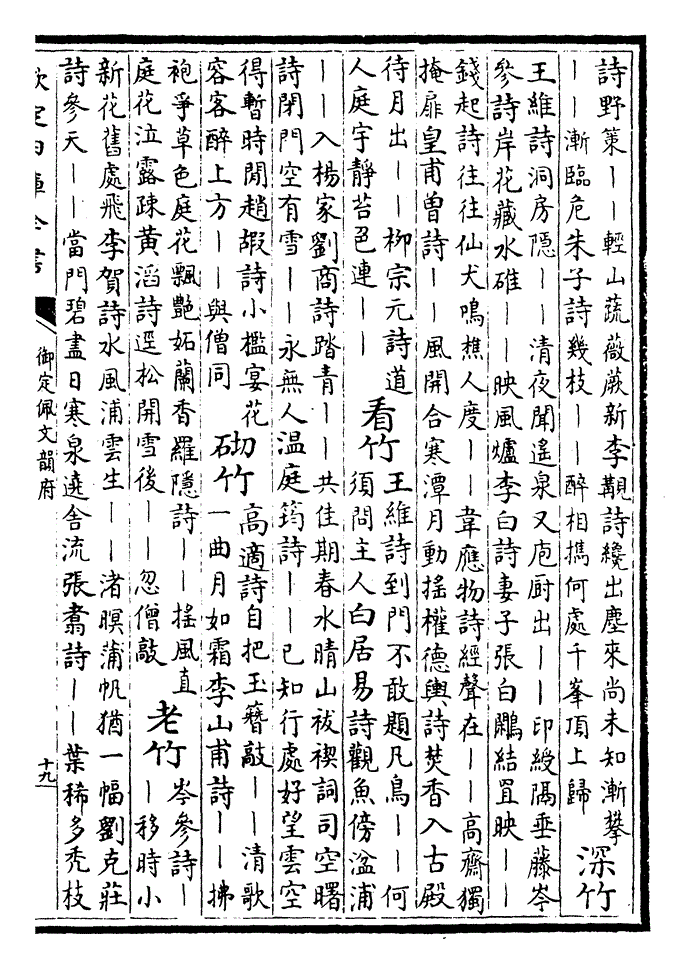 詩野策｜｜輕山蔬薇蕨新李觀詩纔出塵來尚未知漸攀
｜｜漸臨危朱子詩幾枝｜｜醉相攜何處千峯頂上歸
深竹
王維詩洞房隱｜｜清夜聞遥泉又庖厨出｜｜印綬隔垂藤岑
參詩岸花藏水碓｜｜映風爐李白詩妻子張白鷴結罝映｜｜
錢起詩往往仙犬鳴樵人度｜｜韋應物詩經聲在｜｜高齋獨
掩扉皇甫曾詩｜｜風開合寒潭月動搖權德輿詩焚香入古殿
待月出｜｜柳宗元詩道
人庭宇靜苔色連｜｜
看竹
王維詩到門不敢題凡鳥｜｜何
須問主人白居易詩觀魚傍湓浦
｜｜入楊家劉商詩踏青｜｜共佳期春水晴山祓禊詞司空曙
詩閉門空有雪｜｜永無人温庭筠詩｜｜已知行處好望雲空
得暫時閒趙嘏詩小檻宴花
容客醉上方｜｜與僧同
砌竹
高適詩自把玉簪敲｜｜清歌
一曲月如霜李山甫詩｜｜拂
袍爭草色庭花飄艷妬蘭香羅隱詩｜｜搖風直
庭花泣露疎黃滔詩逕松開雪後｜｜忽僧敲
老竹
岑參詩｜
｜移時小
新花舊處飛李賀詩水風浦雲生｜｜渚暝蒲帆猶一幅劉克莊
詩參天｜｜當門碧盡日寒泉遶舍流張翥詩｜｜葉稀多禿枝
欽定四庫全書
御定佩文韻府
十九